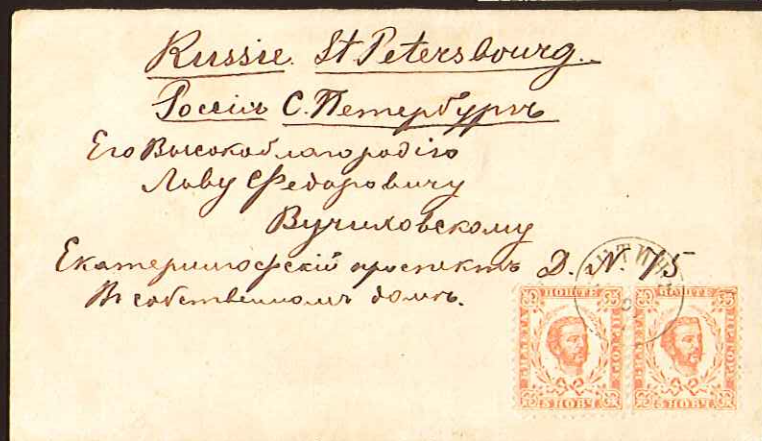 Russie. St Petersbourg.
Россія С. Петербургъ
Его Высокоблагородію
Льву Федоровичу
Вучиховскому
Екатерингофскій проспектъ Д. N. 75
Въ собственномъ домѣ.